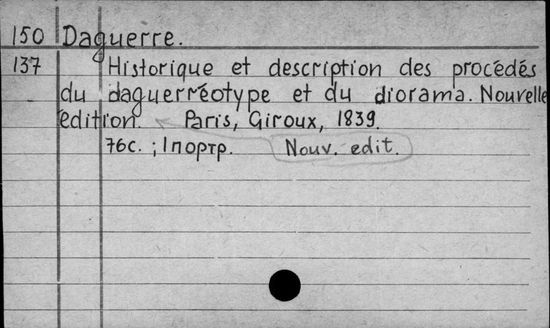 150 Daguerre.
137 Historique et description des procédés
du daguerréotype et du diorama. Nouvelle
édition. Paris, Giroux, 1839.
76с. ; 1 портр. Nouv. edit.